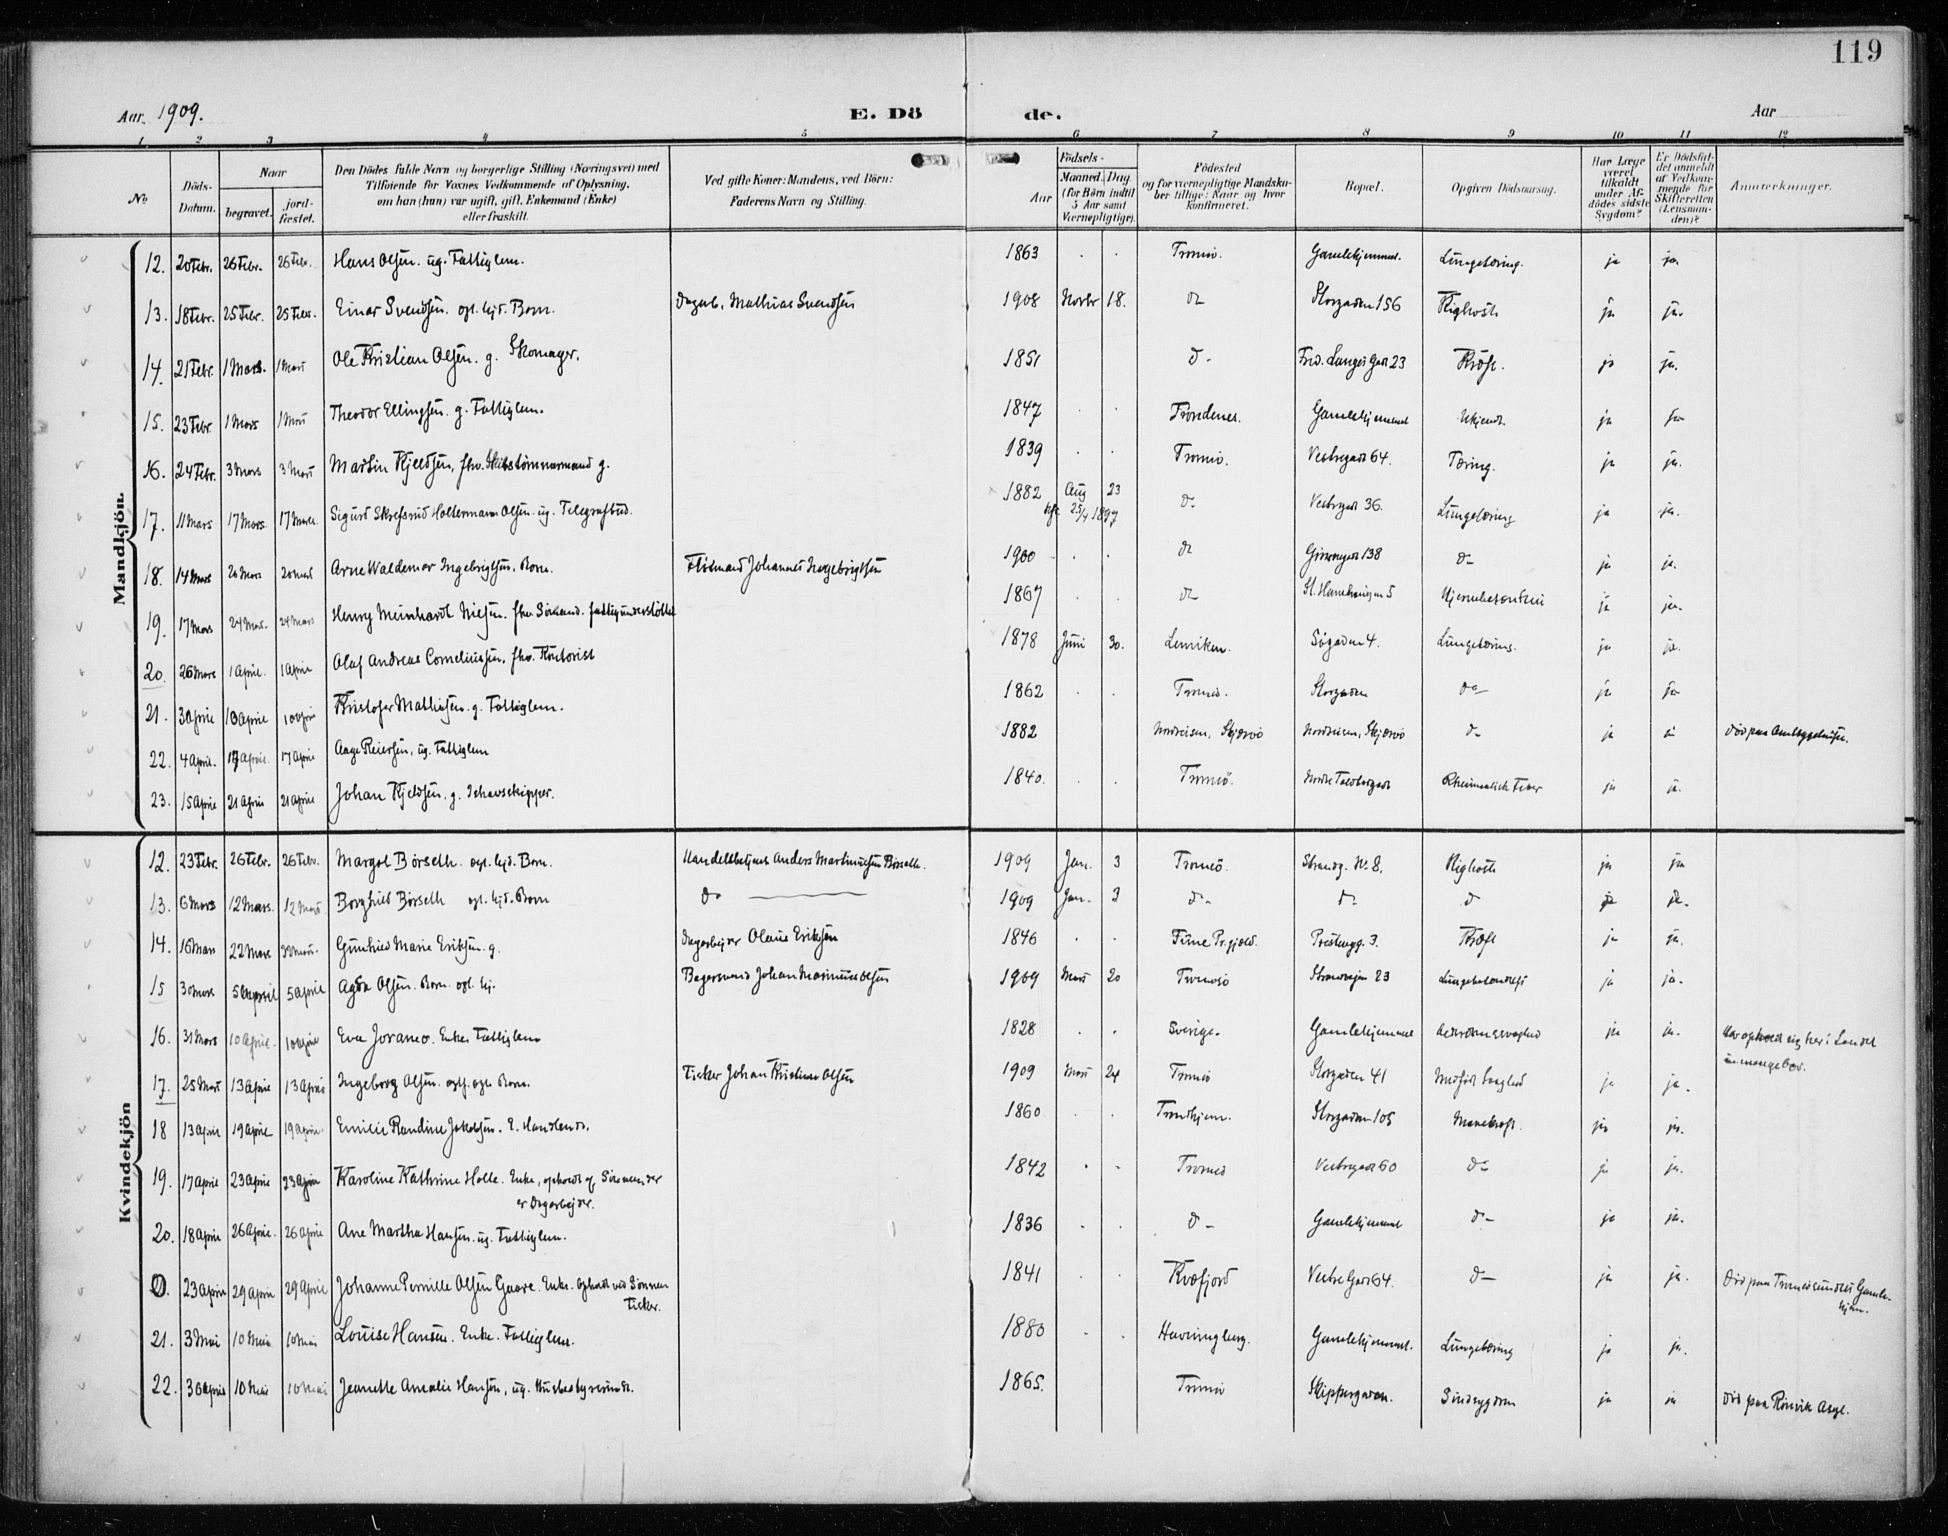 119
Aar 1909.
E. Döde.
Aar
1 2 3 4 5 6 7 8 9 10 11 12
No
Döds-Datum.
Naar
begravet.
jordfæstet.
Den Dödes fulde Navn og borgerlige Stilling (Næringsvei) med
Tilföiende for Voxnes Vedkommende af Oplysning.
om han (hun) var ugift, gift, Enkemand (Enke)
eller fraskilt.
Ved gifte Koner: Mandens, ved Börn:
Faderens Navn og Stilling.
Födsels-
Aar
Maaned. Dag.
(for Börn indtil
5 Aar samt
Værnepligtige).
Födested
og for værnepligtige Mandskaber tillige: Naar og hvor
konfirmeret.
Bopæl.
Opgiven Dödsaarsag.
Har Læge været tilkaldt under Afdödes sidste Sygdom?
Er Dödsfaldet anmeldt af Vedkommende for Skifteretten (Lensmanden)?
Anmærkninger.
Mandkjön.
12. 20 Febr. 26 Febr. 26 Febr. Hans Olsen. ug. Fattiglem. 1863 Tromsö. Gamlehjemmet. Lungetæring. ja ja.
13. 18 Febr. 25 Febr. 25 Febr. Einar Svendsen. Barn. Mathias Svendsen 1908 Novbr 18. do Storgaden 156 Kighoste ja ja.
14. 21 Febr. 1 Mars. 1 Mars Ole Kristian Olsen. g. Skomager. 1851 do Fred. Langes Gade 23 Kræft. ja ja.
15. 23 Febr. 1 Mars 1 Mars Theodor Ellingsen. g. Fattiglem. 1847 Trondenes. Gamlehjemmet Ukjendt. ja ja
16. 24 Febr. 3 Mars 3 Mars Martin Kjeldsen, fhv. Skibstömmermand g. 1839 Tromsö. Vestregade 64. Tæring. ja ja.
17. 11 Mars 17 Mars 17 Mars Sigurd Skrefsrud Holtermann Olsen. ug. Telegrafbud. 1882 Aug 23 25/4 1897 do Vestregade 36. Lungetæring ja ja.
18. 14 Mars 20 Mars 20 Mars Arne Waldemar Ingebrigtsen. Barn. Johannes Ingebrigtsen 1900 do Grönnegade 138 do ja ja.
19. 17 Mars 24 Mars. 24 Mars Henry Meinhardt Nielsen. fhv. Sömand. fattigunderstöttet 1867 do St. Hanshaugen 5 Hjernebetændelse ja ja.
20. 26 Mars 1 April. 1 April Olaf Andreas Corneliussen. fhv. Kontorist 1878 Juni 30. Lenviken. Sögaden 4. Lungetæring. ja ja.
21. 3 April 10 April 10 April Kristofer Mathisen. g. Fattiglem. 1862 Tromsö. Storgaden do ja ja
22. 4 April. 17 April. 17 April Aage Reiersen, ug. Fattiglem 1882 Nordreisen, Skjærvö Nordreisen, Skjærvö do ja ja Död paa Amtssygehuset.
23. 15 April 21 April 21 April Johan Kjeldsen. g. Ishavsskipper. 1840. Tromsö. Nordre Toldbodgade Rheumatisk Feber ja ja.
Kvindekjön
12. 23 Febr. 26 Febr. 26 Febr. Margot Börseth. Barn. Handelsbetjent Anders Martinussen Börseth. 1909 Jan. 3 Tromsö. Strandg. No 8. Kighoste ja ja
13. 6 Mars 12 Mars. 12 Mars Borghild Börseth Barn do 1909 Jan. 3 do do do ja ja.
14. 16 Mars 22 Mars 22 Mars. Gunhild Marie Eriksen. g. Dagarbejder Olaus Eriksen 1846 Prestengg. 3. Kræft ja ja.
15 30 Mars 5 April 5 April Agda Olsen. Barn. Bagersvend Johan Rasmus Olsen 1909 Mars 20 Tromsö Strandvejen 23 Lungebetændelse ja ja.
16. 31 Mars 10 April. 10 April Eva Joramo. Enke Fattiglem 1828 Sverige. Gamlehjemmet Alderdomssvaghed ja ja. Har opholdt sig her i Landet
i mange Aar.
17. 25 Mars 13 April 13 April Ingeborg Olsen. Barn. Fisker Johan Kristian Olsen 1909 Mars 24 Tromsö Storgaden 41 Medfödt Svaghed ja ja.
18 13 April 19 April 19 April. Emilie Randine Jakobsen. E. 1860 Trondhjem. Storgaden 105 Mavekræft. ja ja.
19. 17 April 23 April 23 April Karoline Kathrine Holte. Enke, opholdt af Sönnen, der
er Dagarbejder. 1842 Tromsö Vestregade 60 do ja ja.
20. 18 April 26 April. 26 April Ane Martha Hansen. ug. Fattiglem. 1836 do Gamlehjemmet do ja ja.
23 April 29 April 29 April Johanne Pernille Olsen Gaare. Enke. opholdt ved Sönnen
Fisker. 1841 Kvæfjord Vestre Gade 64. do ja ja. Död paa Tromsösundets Gamlehjem.
21. 3 Mai 10 Mai 10 Mai Louise Hansen. Enke. Fattiglem. 1880 Havningberg. Gamlehjemmet. Lungetæring ja ja.
22. 30 April 10 Mai 10 Mai Jeanette Amalie Hansen, ug. Husbestyrerinde. 1865. Tromsö Skippergaden. Sindssygdom ja ja Död paa Rönvik Asyl.